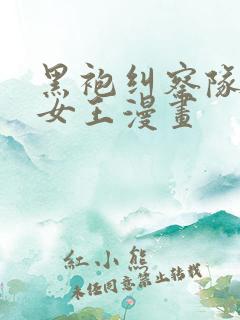 黑袍纠察队
女王漫畫
紅小熊
未经同意禁止转载